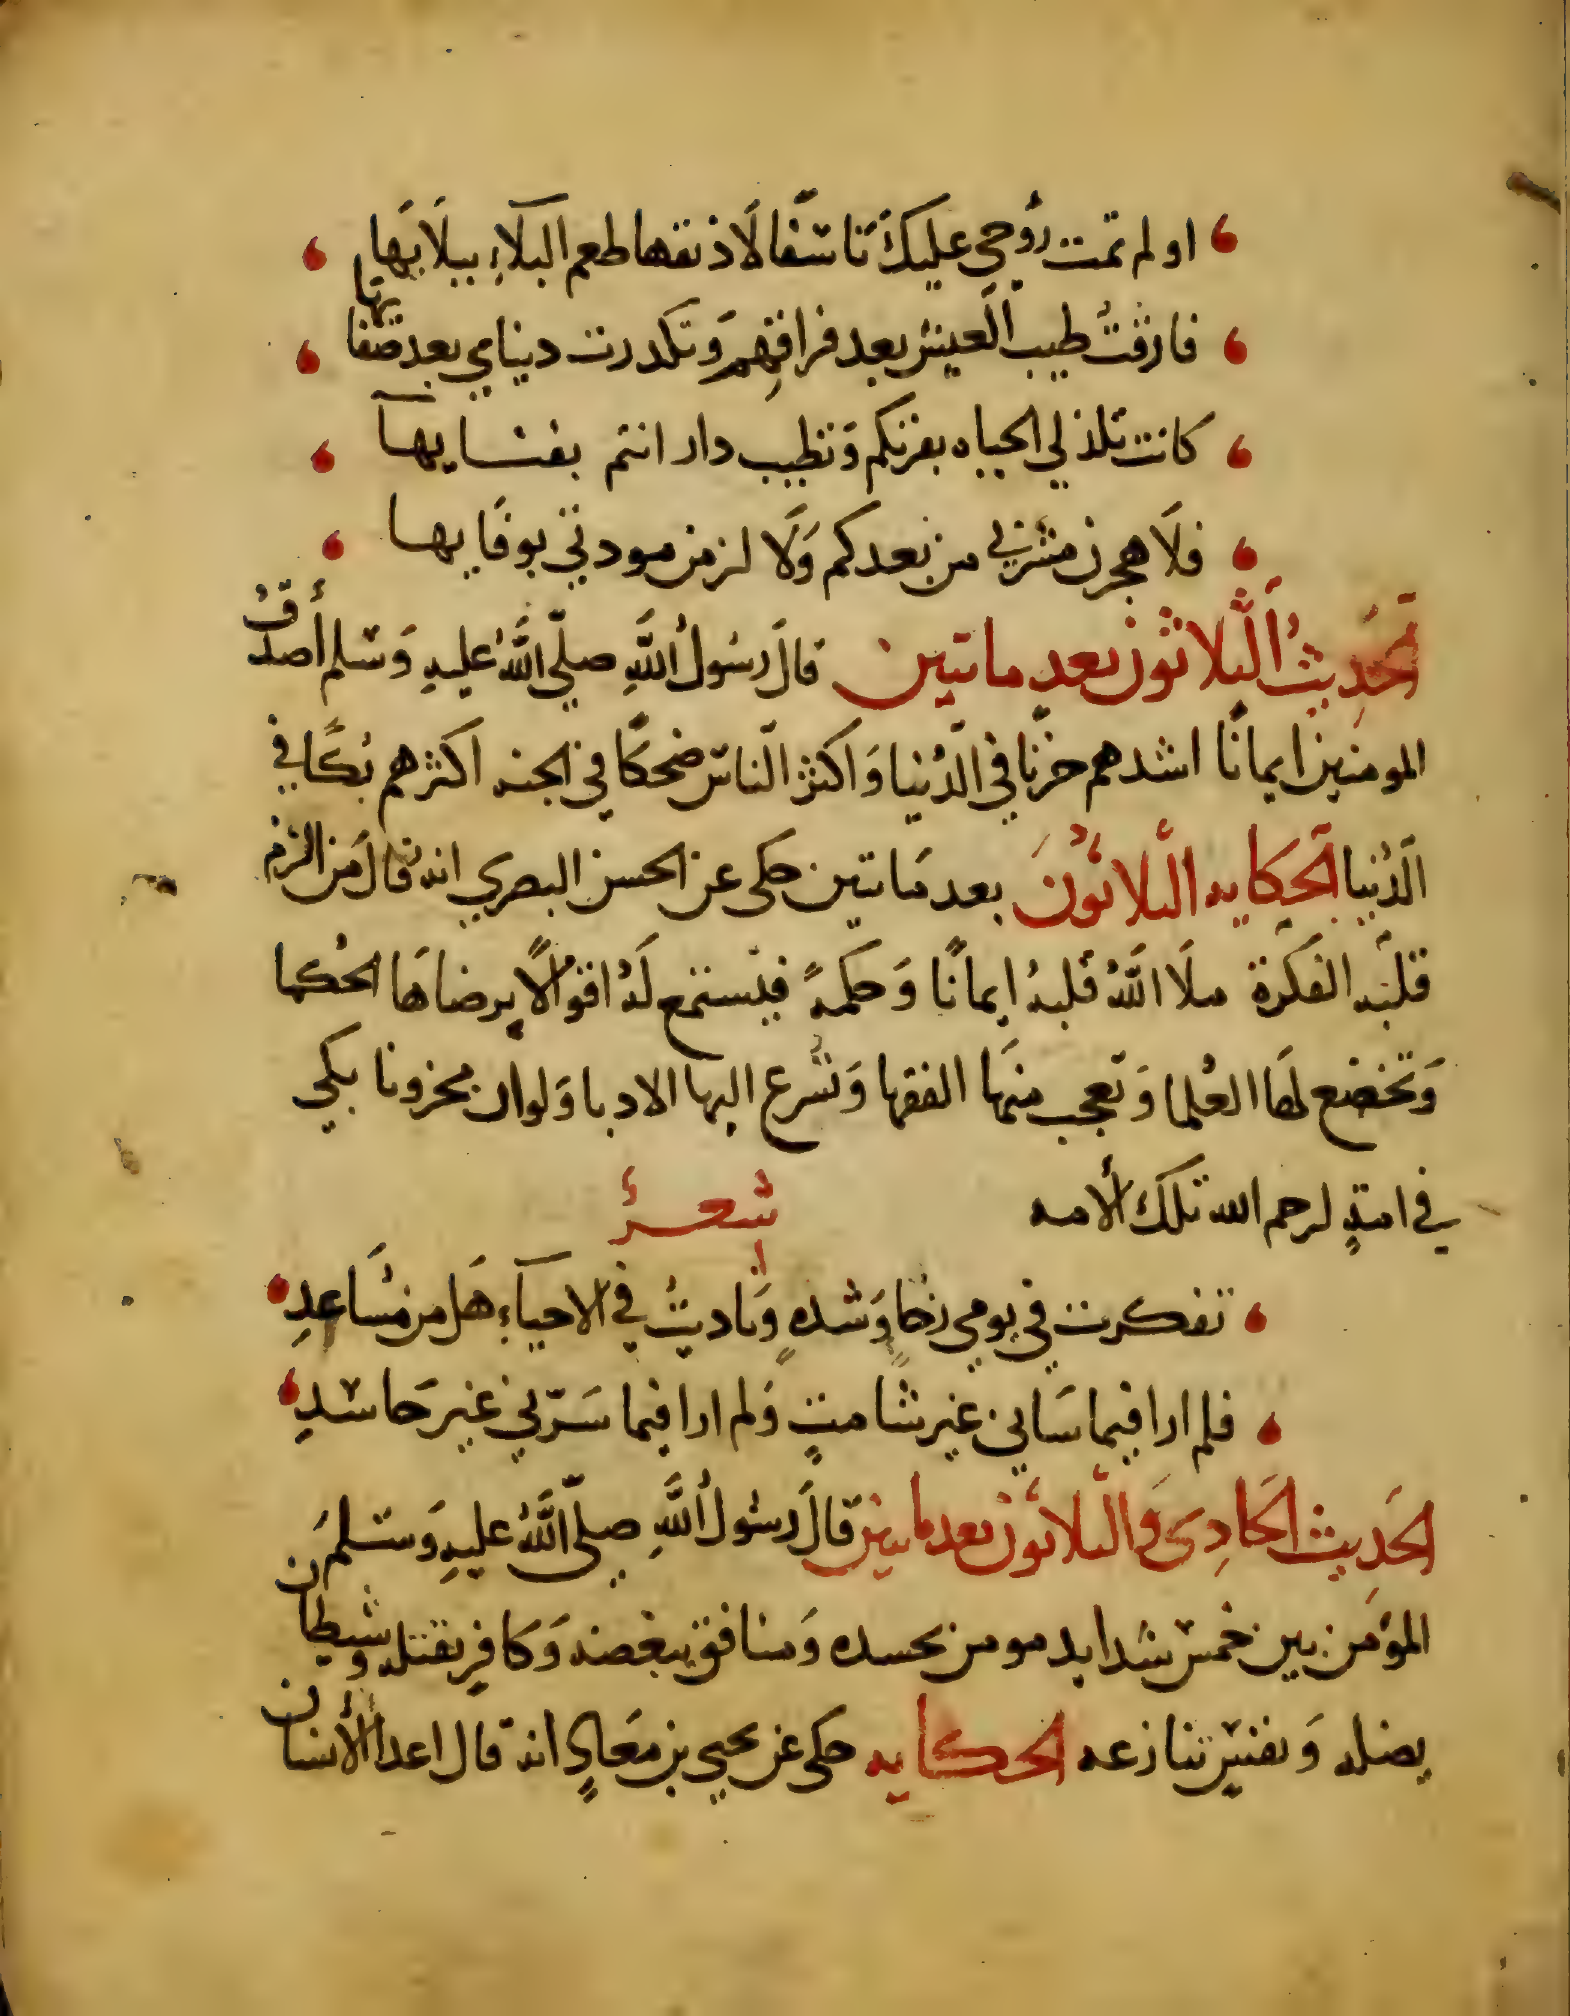 او لم تمت رُوحي عليك تاسّفا لَاذقتها طعم البَلَاءِ ببلَايَها
فارقتُ طيب العيش بعد فراقهِم وَتكدرت دنيامي بعد صَفايها
كانت تلذ لي الحياه بقربكم وَتطيب دار انتم بفنايها
فلَاهجرن مشربي من بعدكم وَلَا لزمن مودتي بوفَايها
الحَدِيثُ الثَّلاثون بعد ماتين قالَ رسُول اللَّهِ صلّى اللَّهُ عليهِ وَسَلم أصدَقُ
المومنين ايمانًا اشدهم حزنًا في الدُنيا وَاكثر النَاس ضحكًا في الجنه اكثرهم بُكًا في
الدُنيا الحِكايه الثّلاثُونَ بعد مَاتين حكى عن الحسن البصري انه قالَ من الزم
قلبَه الفكرة ملَا اللَّهُ قلبهُ ايمانًا وَحكمةً فيستمع لَهُ اقوالًا يرضاهَا الحُكما
وَتخضع لهَا العُلما وَتعجب منهَا الفقها وَتسرع اليهَا الادبا وَلوان محزونا بكى
في امةٍ لرحم الله تلكَ الأمه
شعرٌ
تفكرت في يومي رخَا وَشدهٍ وَنَاديتُ في الاحيَآءِ هَل من مُسَاعدِ
فلم ارا فيما سَاني غير شَامتٍ وَلم ارا فيما سَرّني غير حَاسدِ
الحَدِيث الحَادِى وَالثّلاثون بعد ماتين قالَ رسُول اللَّهِ صلّى اللَّهُ عليهِ وَسَلمَ
المؤمن بين خمس شدايد مومن يحسده وَمنافق يبغضه وَكافرٍ يقتله وشيطان
يضله وَنفس تنازعه الحكايه حكى عن يحيي بن مَعَادٍ انه قال اعدا الأنسان